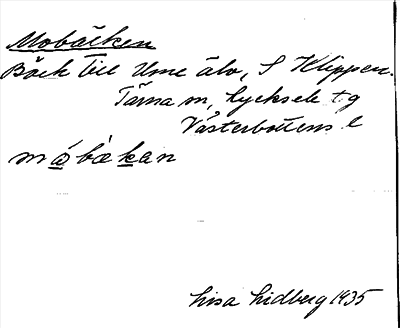 Mobäcken
Bäck till Ume älv, S Klippen.
Tärna sn, Lycksele tg
Västerbottens l
mábàkan
Lisa Lidberg 1935